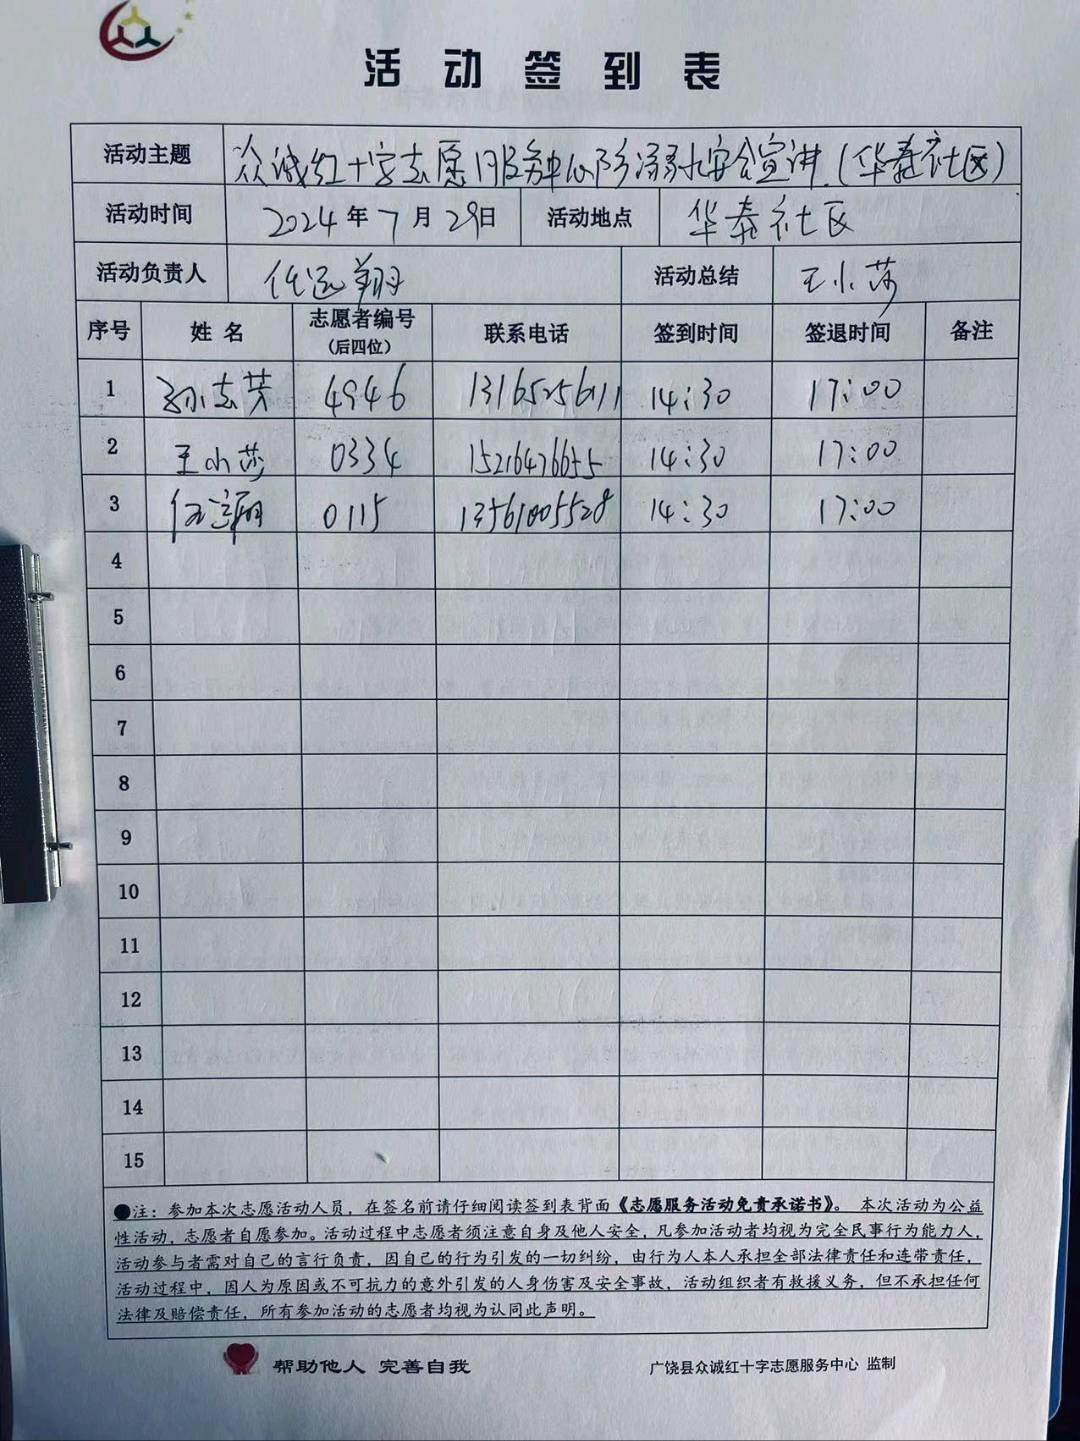 活动签到表
活动主题 众诚红十字志愿服务中心防溺水安全宣讲.(华泰社区)
活动时间 2024年7月29日 活动地点 华泰社区
活动负责人 任远翔 活动总结 王小莎
序号 姓名 志愿者编号(后四位) 联系电话 签到时间 签退时间 备注
1 孙志芳 4946 13165256111 14:30 17:00
2 王小莎 0334 15216476655 14:30 17:00
3 任远翔 0115 13561005528 14:30 17:00
4
5
6
7
8
9
10
11
12
13
14
15
●注:参加本次志愿活动人员,在签名前请仔细阅读签到表背面《志愿服务活动免责承诺书》。本次活动为公益
性活动,志愿者自愿参加。活动过程中志愿者须注意自身及他人安全,凡参加活动者均视为完全民事行为能力人,
活动参与者需对自己的言行负责,因自己的行为引发的一切纠纷,由行为人本人承担全部法律责任和连带责任,
活动过程中,因人为原因或不可抗力的意外引发的人身伤害及安全事故,活动组织者有救援义务,但不承担任何
法律及赔偿责任,所有参加活动的志愿者均视为认同此声明。
帮助他人 完善自我 广饶县众诚红十字志愿服务中心 监制